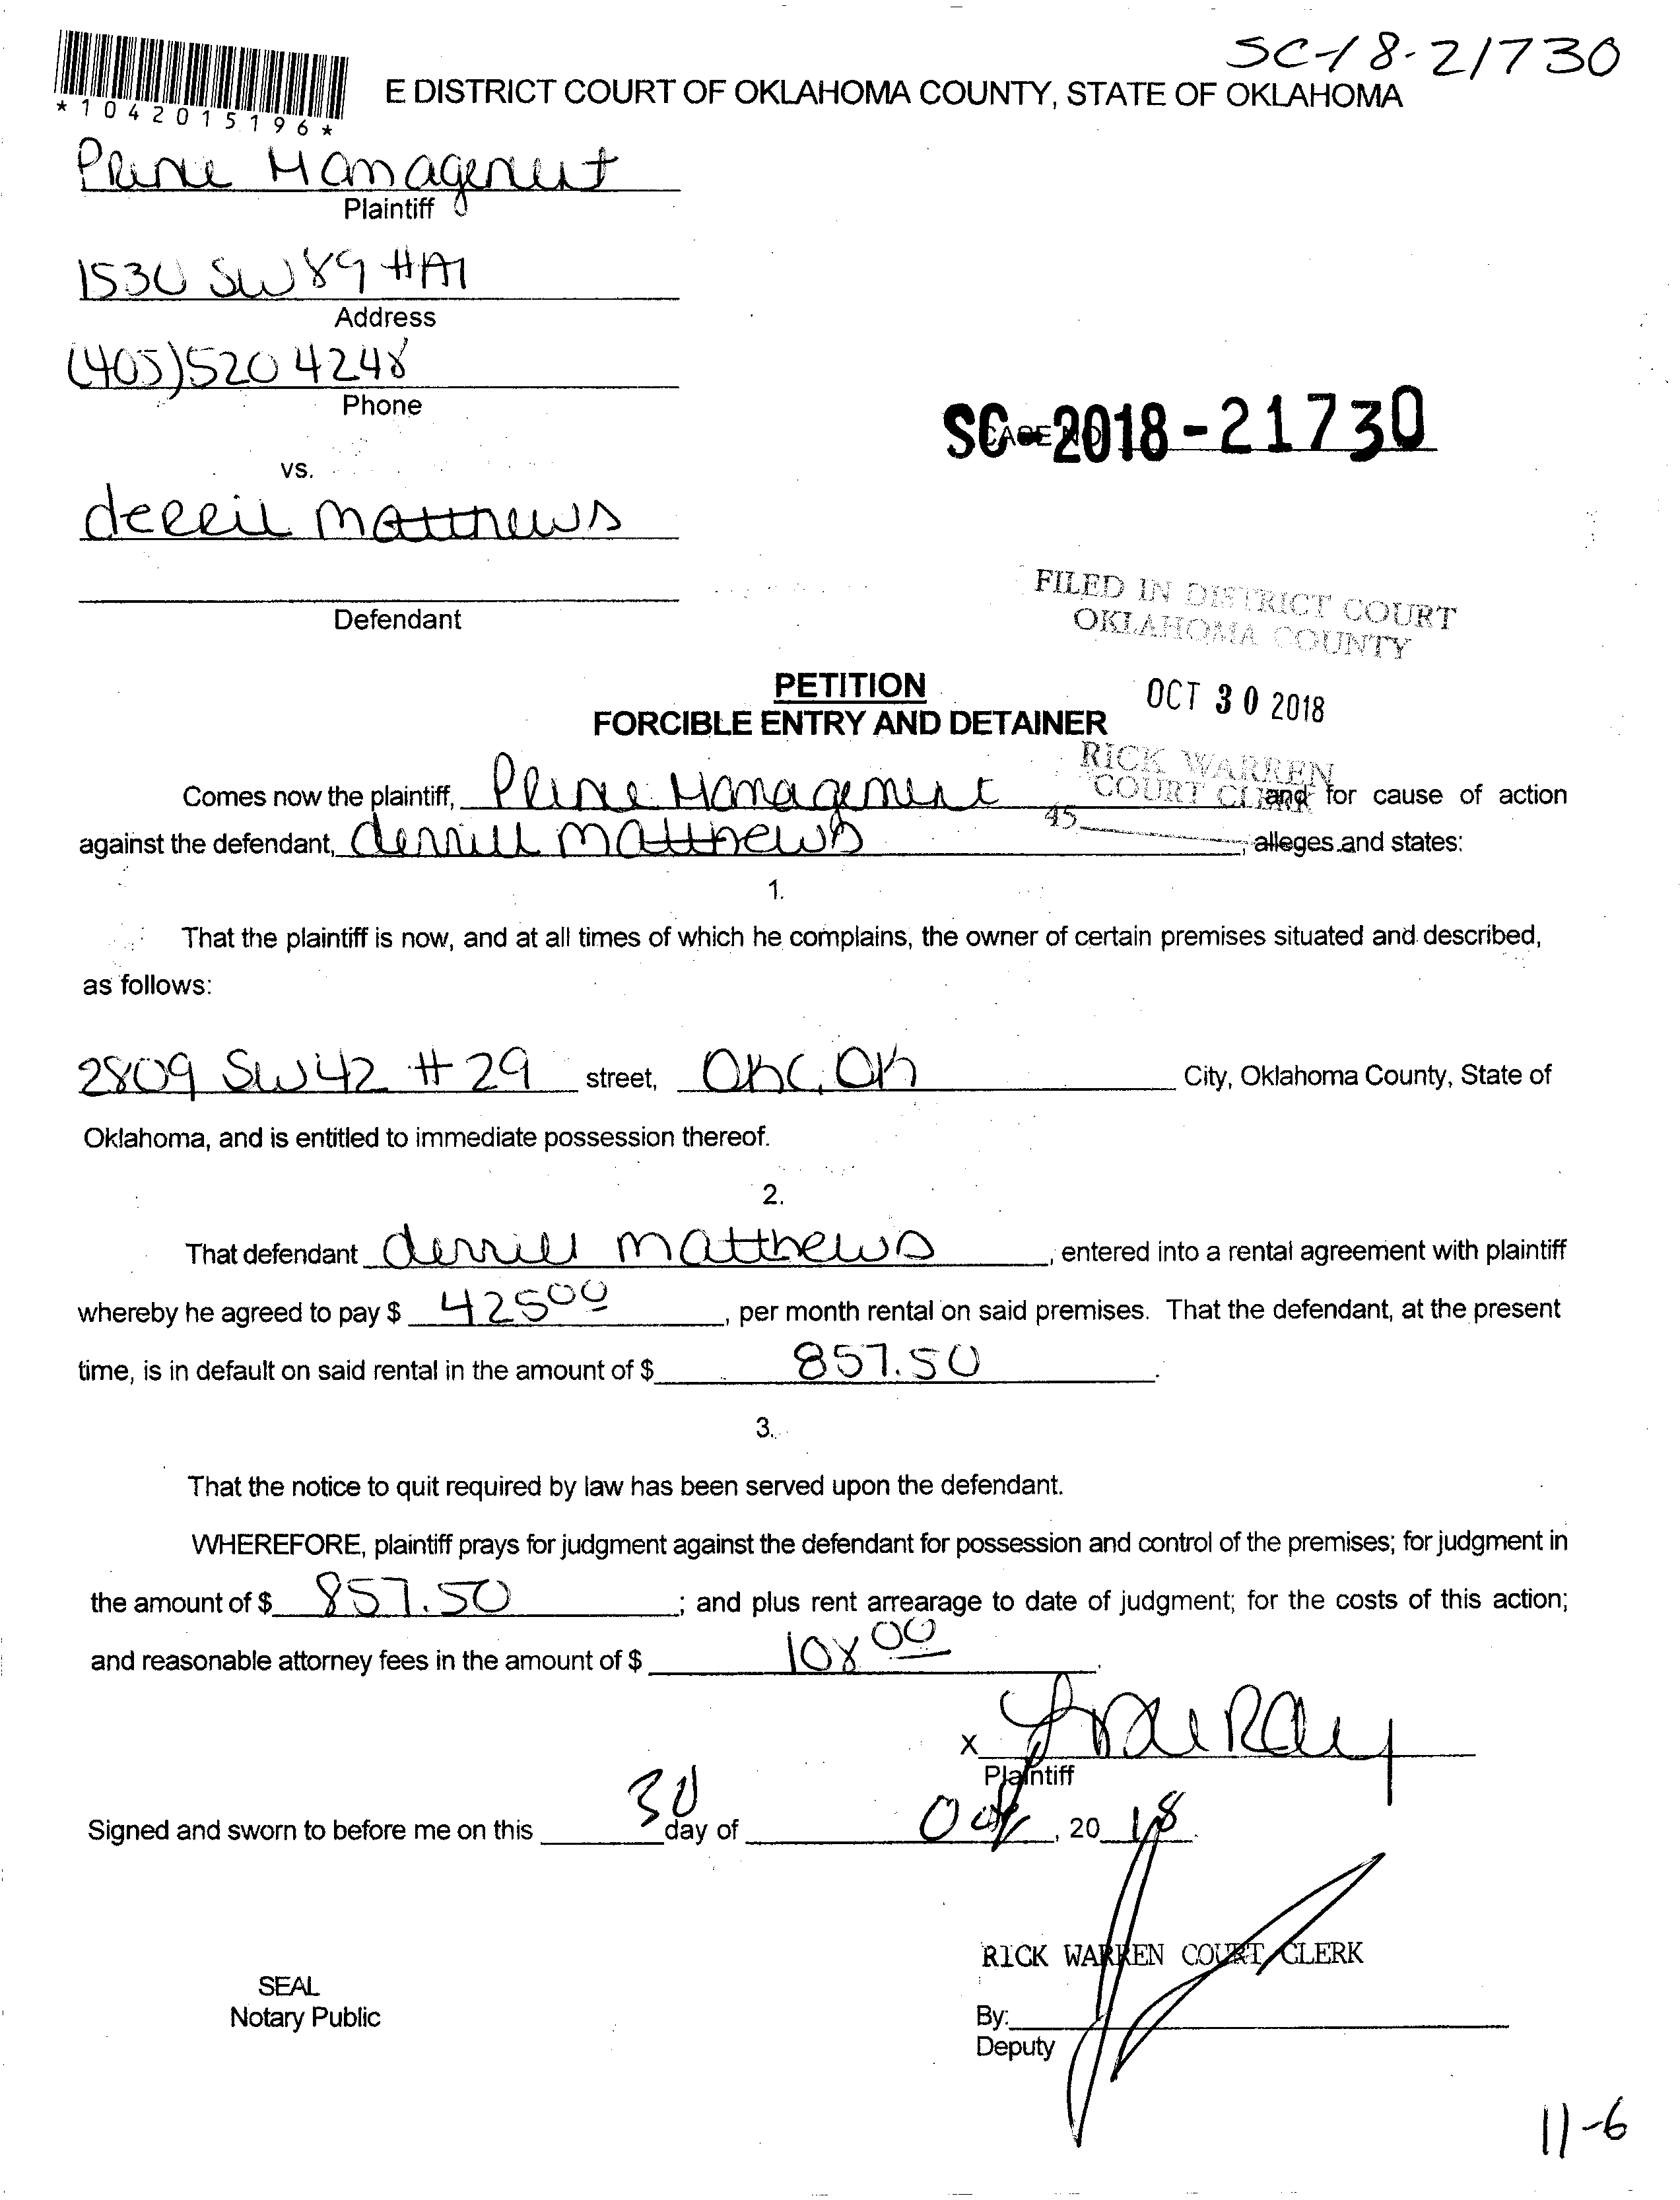 SC-18-21730
*1042015196*
E DISTRICT COURT OF OKLAHOMA COUNTY, STATE OF OKLAHOMA
Prine Management
Plaintiff
1530 SW 89 #A1
Address
(405) 520 4248
Phone
SC-2018-21730
CASE NO
vs.
derril matthews
Defendant
FILED IN DISTRICT COURT
OKLAHOMA COUNTY
OCT 30 2018
RICK WARREN
COURT CLERK
45
PETITION
FORCIBLE ENTRY AND DETAINER
Comes now the plaintiff, Prine Management and for cause of action
against the defendant, derrill matthews, alleges and states:
1.
That the plaintiff is now, and at all times of which he complains, the owner of certain premises situated and described,
as follows:
2809 SW 42 # 29 street, OKC, OK City, Oklahoma County, State of
Oklahoma, and is entitled to immediate possession thereof.
2.
That defendant derrill matthews, entered into a rental agreement with plaintiff
whereby he agreed to pay $ 425 00, per month rental on said premises. That the defendant, at the present
time, is in default on said rental in the amount of $ 857.50.
3.
That the notice to quit required by law has been served upon the defendant.
WHEREFORE, plaintiff prays for judgment against the defendant for possession and control of the premises; for judgment in
the amount of $ 857.50; and plus rent arrearage to date of judgment; for the costs of this action;
and reasonable attorney fees in the amount of $ 108 00.
X
Plaintiff
Signed and sworn to before me on this 30 day of Oct, 20 18.
RICK WARREN COURT CLERK
SEAL
Notary Public
By:
Deputy
11-6